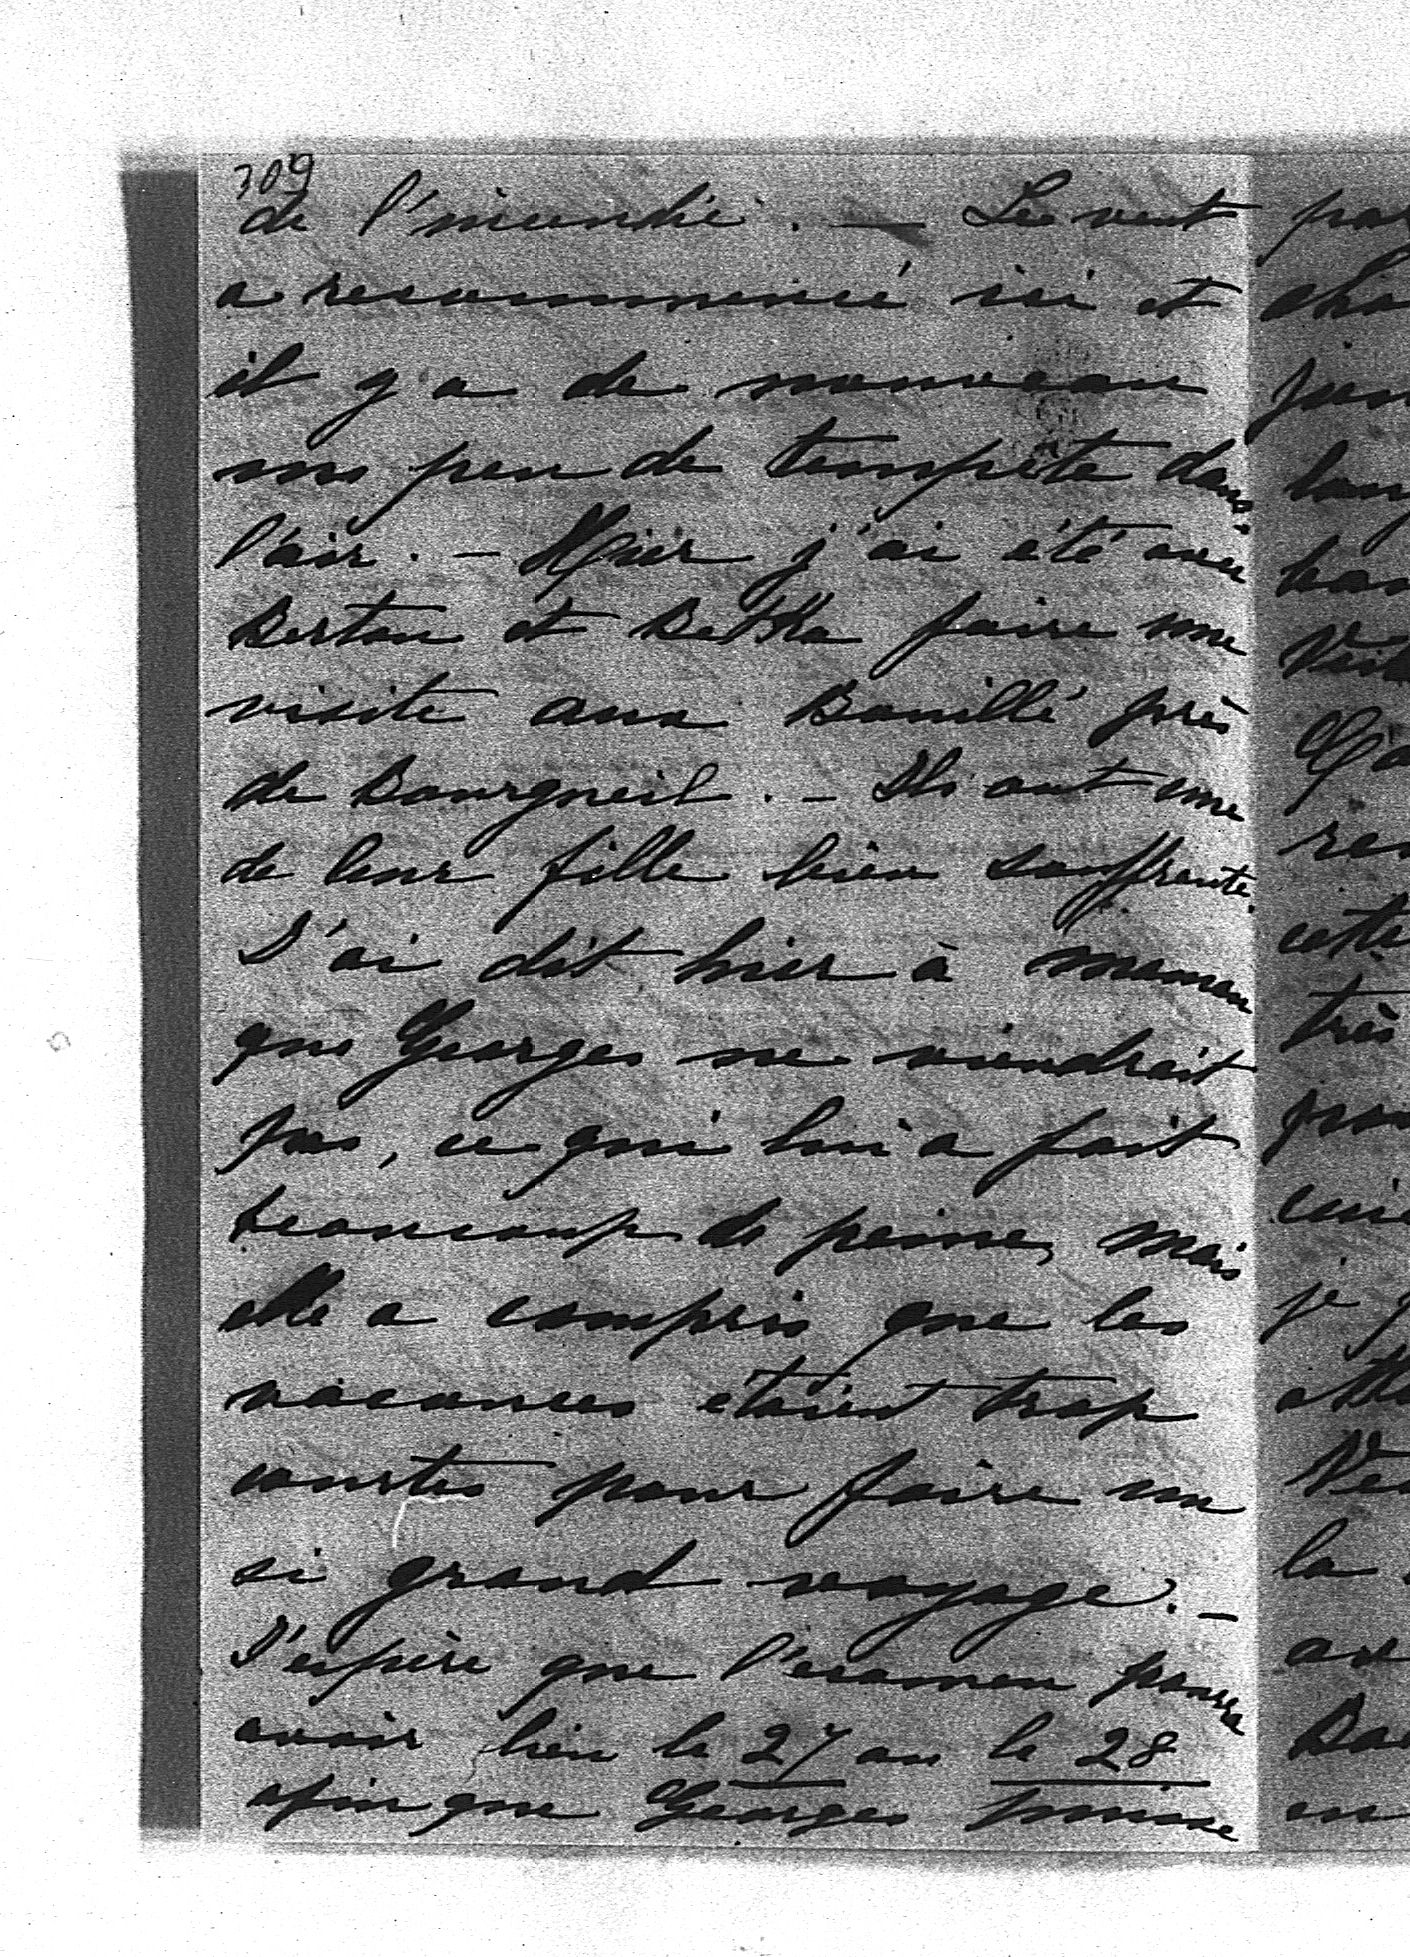 309
de l'incendie. — Le vent
a recommencé ici et
il y a de nouveau
un peu de tempête dans
l'air. — Hier j'ai été avec
Bertan et Betka faire une
visite aux Bouillé près
de Bourgueil. — Ils ont une
de leur fille bien souffrante.
J'ai dit hier à maman
que Georges ne viendrait
pas, ce qui lui a fait
beaucoup de peine, mais
elle a compris que les
vacances étaient trop
courtes pour faire un
si grand voyage. —
J'espère que l'examen pourra
avoir lieu le 27 ou le 28
afin que Georges puisse